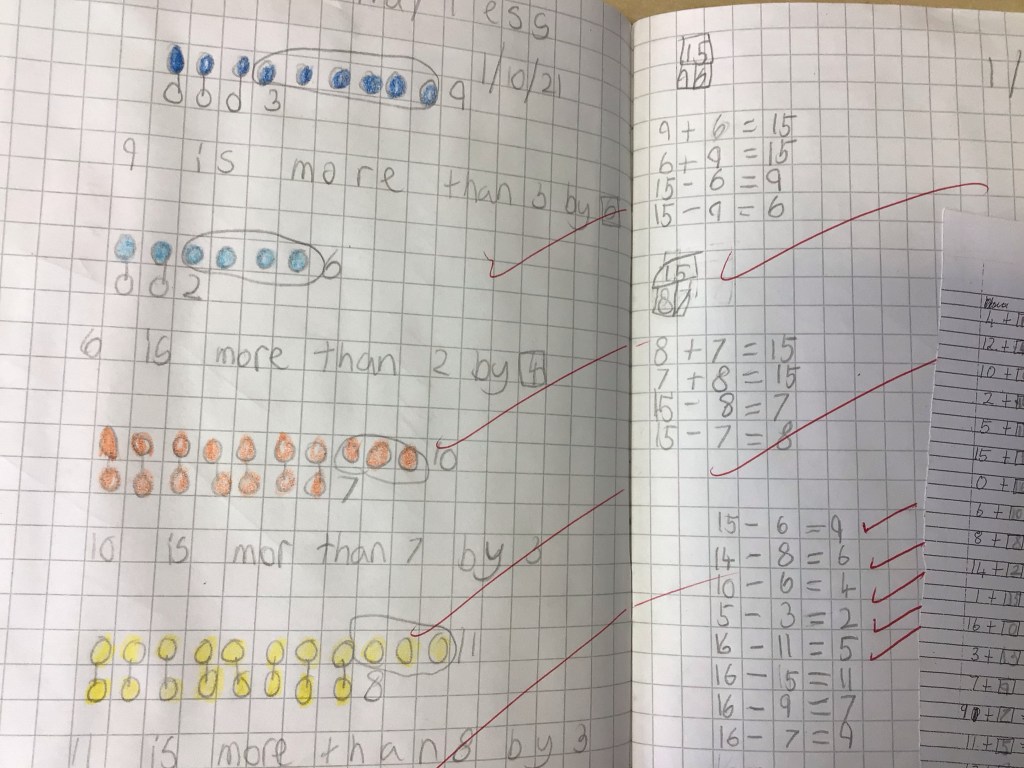 less
9 1/10/21
3
9 is more than 3 by 6
6
2
6 is more than 2 by 4
10
7
10 is mor than 7 by 3
11
8
11 is more than 8 by 3
15
1/
9 + 6 = 15
6 + 9 = 15
15 - 6 = 9
15 - 9 = 6
15
8 7
8 + 7 = 15
7 + 8 = 15
15 - 8 = 7
15 - 7 = 8
15 - 6 = 9
14 - 8 = 6
10 - 6 = 4
5 - 3 = 2
16 - 11 = 5
16 - 15 = 11
16 - 9 = 7
16 - 7 = 9
4 +
12 +
10 +
2 +
5 +
15 +
0 +
6 +
8 +
14 +
1 +
16 +
3 +
7 +
9 +
11 +